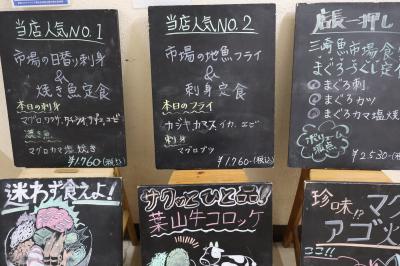 当店人気NO.1
市場の日替り刺身
&
焼き魚定食
本日の刺身
焼き魚
マグロカマ塩焼き
¥1760-(税込)
当店人気NO.2
市場の地魚フライ
&
刺身定食
本日のフライ
カジキ,カマス,イカ,エビ
刺身
マグロブツ
¥1760-(税込)
店長一押し
三崎魚市場食堂
まぐろづくし定食
まぐろ刺
まぐろカツ
まぐろカマ塩焼
¥2530-(税込)
迷わず食えよ!
サクッとひと品!
葉山牛コロッケ
珍味!?
マグ
アゴ
ココ!!